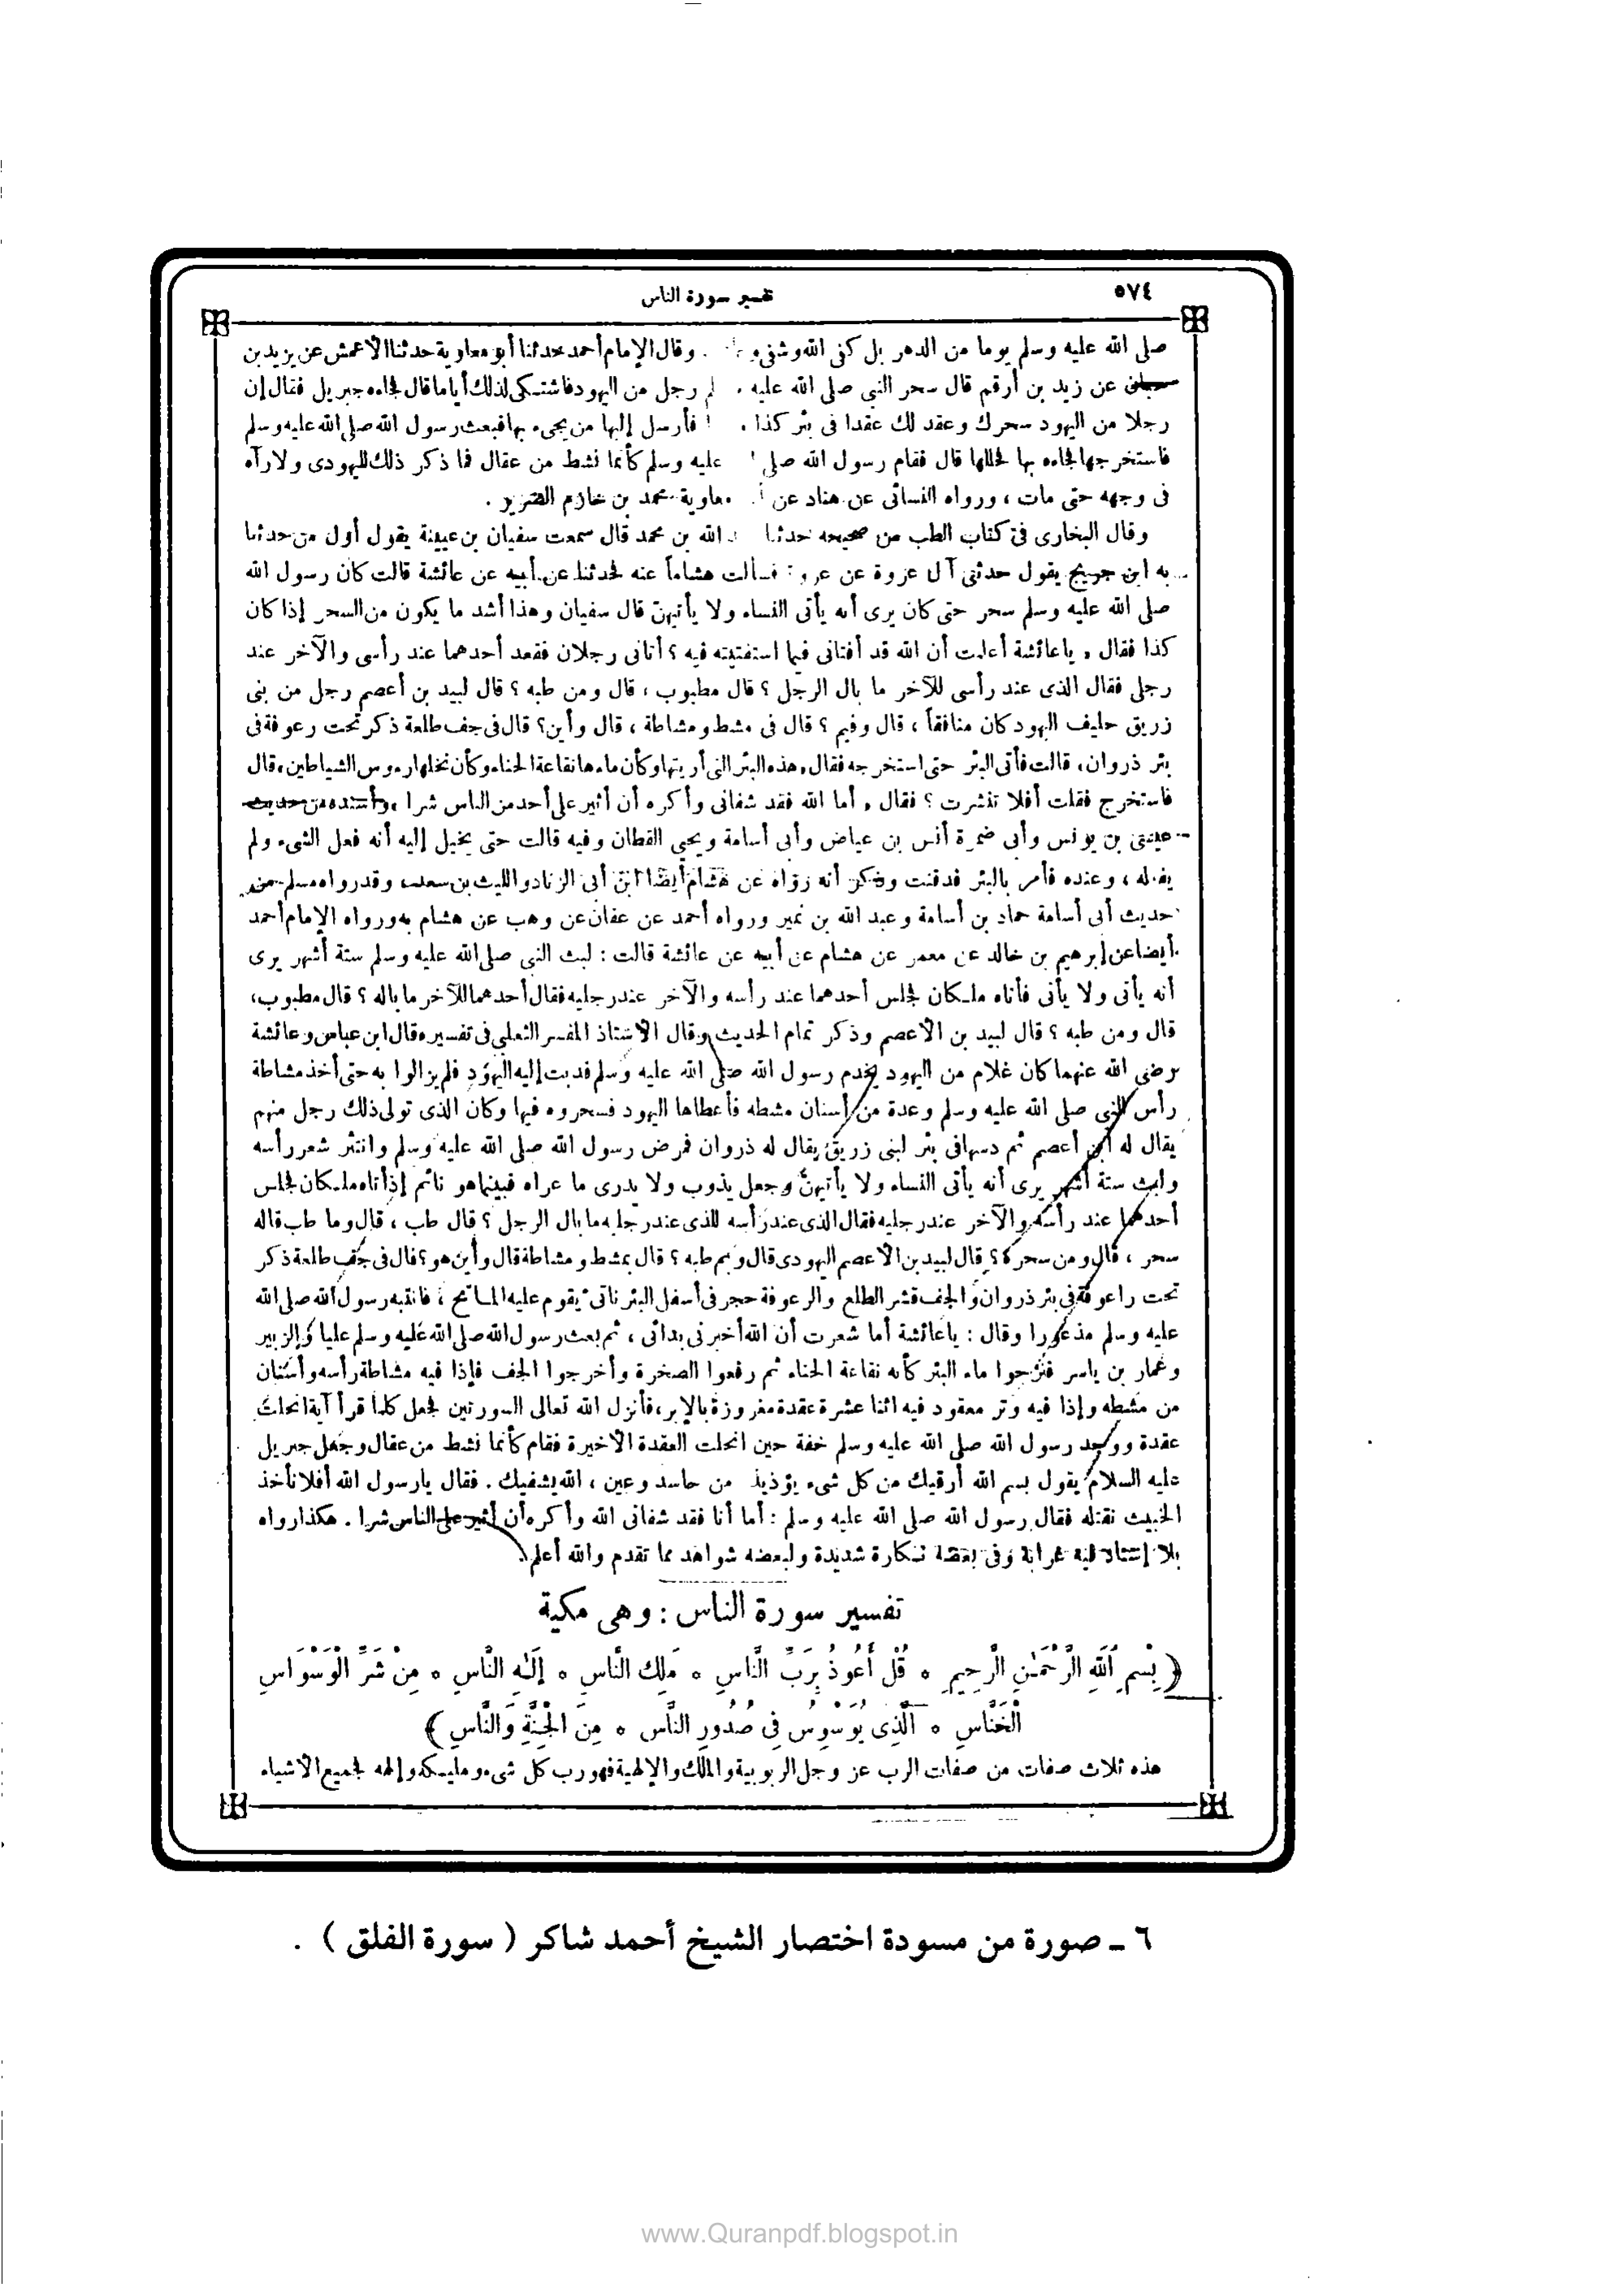 ٥٧٤
تفسير سورة الناس
صلى الله عليه وسلم يوما من الدهر بل كفى الله وشفى و . وقال الإمام أحمد حدثنا أبو معاوية حدثنا الأعمش عن يزيد بن
حبان عن زيد بن أرقم قال سحر النبى صلى الله عليه رجل من اليهود فاشتكى لذلك أياما قال فجاءه جبريل فقال إن
رجلا من اليهود سحرك وعقد لك عقدا فى بئر كذا فأرسل إليها من يجىء بها فبعث رسول الله صلى الله عليه وسلم
فاستخرجها فجاءه بها فحللها قال فقام رسول الله صلى عليه وسلم كأنما نشط من عقال فما ذكر ذلك لليهودى ولا رآه
فى وجهه حتى مات ، ورواه النسائى عن هناد عن معاوية محمد بن خازم الضرير .
وقال البخارى فى كتاب الطب من صحيحه حدثنا الله بن محمد قال سمعت سفيان بن عيينة يقول أول من حدثنا
به ابن جريج يقول حدثنى آل عروة عن عروة فسألت هشاما عنه فحدثنا عن أبيه عن عائشة قالت كان رسول الله
صلى الله عليه وسلم سحر حتى كان يرى أنه يأتى النساء ولا يأتيهن قال سفيان وهذا أشد ما يكون من السحر إذا كان
كذا فقال « ياعائشة أعلمت أن الله قد أفتانى فيما استفتيته فيه ؟ أتانى رجلان فقعد أحدهما عند رأسى والآخر عند
رجلى فقال الذى عند رأسى للآخر ما بال الرجل ؟ قال مطبوب ، قال ومن طبه ؟ قال لبيد بن أعصم رجل من بنى
زريق حليف اليهود كان منافقاً ، قال وفيم ؟ قال فى مشط ومشاطة ، قال وأين ؟ قال فى جف طلعة ذكر تحت رعوفة فى
بئر ذروان ، قالت فأتى البئر حتى استخرجه فقال « هذه البئر التى أريتها وكأن ماءها نقاعة الحناء وكأن نخلها رءوس الشياطين » قال
فاستخرج فقلت أفلا تنشرت ؟ فقال « أما الله فقد شفانى وأكره أن أثير على أحد من الناس شرا » وأسنده من حديث
عيسى بن يونس وأبى ضمرة أنس بن عياض وأبى أسامة ويحيى القطان وفيه قالت حتى يخيل إليه أنه فعل الشىء ولم
يفعله ، وعنده فأمر بالبئر فدفنت وذكر أنه رواه عن هشام أيضا ابن أبى الزناد والليث بن سعد ، وقد رواه مسلم من
حديث أبى أسامة حماد بن أسامة وعبد الله بن نمير ورواه أحمد عن عفان عن وهب عن هشام به ورواه الإمام أحمد
أيضا عن إبرهيم بن خالد عن معمر عن هشام عن أبيه عن عائشة قالت : لبث النبى صلى الله عليه وسلم ستة أشهر يرى
أنه يأتى ولا يأتى فأتاه ملكان فجلس أحدهما عند رأسه والآخر عند رجليه فقال أحدهما للآخر ما باله ؟ قال مطبوب ،
قال ومن طبه ؟ قال لبيد بن الأعصم وذكر تمام الحديث وقال الأستاذ المفسر الثعلبى فى تفسيره قال ابن عباس وعائشة
رضى الله عنهما كان غلام من اليهود يخدم رسول الله صلى الله عليه وسلم فدبت إليه اليهود فلم يزالوا به حتى أخذ مشاطة
رأس النبى صلى الله عليه وسلم وعدة من أسنان مشطه فأعطاها اليهود فسحروه فيها وكان الذى تولى ذلك رجل منهم
يقال له ابن أعصم ثم دسها فى بئر لبنى زريق يقال له ذروان فمرض رسول الله صلى الله عليه وسلم وانتثر شعر رأسه
ولبث ستة أشهر يرى أنه يأتى النساء ولا يأتيهن وجعل يذوب ولا يدرى ما عراه فبينما هو نائم إذ أتاه ملكان فجلس
أحدهما عند رأسه والآخر عند رجليه فقال الذى عند رأسه للذى عند رجليه ما بال الرجل ؟ قال طب ، قال وما طب قال
سحر ، قال ومن سحره ؟ قال لبيد بن الأعصم اليهودى قال وبم طبه ؟ قال بمشط ومشاطة قال وأين هو ؟ قال فى جف طلعة ذكر
تحت راعوفة فى بئر ذروان والجف قشر الطلع والرعوفة حجر فى أسفل البئر ناتىء يقوم عليه الماتح ، فانتبه رسول الله صلى الله
عليه وسلم مذعورا وقال : ياعائشة أما شعرت أن الله أخبرنى بدائى ، ثم بعث رسول الله صلى الله عليه وسلم عليا والزبير
وعمار بن ياسر فنزحوا ماء البئر كأنه نقاعة الحناء ثم رفعوا الصخرة وأخرجوا الجف فإذا فيه مشاطة رأسه وأسنان
من مشطه وإذا فيه وتر معقود فيه اثنا عشرة عقدة مغروزة بالإبر ، فأنزل الله تعالى السورتين فجعل كلما قرأ آية انحلت
عقدة ووجد رسول الله صلى الله عليه وسلم خفة حين انحلت العقدة الأخيرة فقام كأنما نشط من عقال وجعل جبريل
عليه السلام يقول بسم الله أرقيك من كل شىء يؤذيك من حاسد وعين ، الله يشفيك . فقال يارسول الله أفلا نأخذ
الخبيث نقتله فقال رسول الله صلى الله عليه وسلم : أما أنا فقد شفانى الله وأكره أن أثير على الناس شرا . هكذا رواه
بلا إسناد فيه غرابة وفى بعضه نكارة شديدة ولبعضه شواهد مما تقدم والله أعلم
تفسير سورة الناس : وهى مكية
﴿ بِسْمِ اللَّهِ الرَّحْمَٰنِ الرَّحِيمِ ٥ قُلْ أَعُوذُ بِرَبِّ النَّاسِ ٥ مَلِكِ النَّاسِ ٥ إِلَٰهِ النَّاسِ ٥ مِنْ شَرِّ الْوَسْوَاسِ
الْخَنَّاسِ ٥ الَّذِى يُوَسْوِسُ فِى صُدُورِ النَّاسِ ٥ مِنَ الْجِنَّةِ وَالنَّاسِ ﴾
هذه ثلاث صفات من صفات الرب عز وجل الربوبية والملك والإلهية فهو رب كل شىء ومليكه وإلهه لجميع الأشياء
٦ ـ صورة من مسودة اختصار الشيخ أحمد شاكر ( سورة الفلق ) .
www.Quranpdf.blogspot.in